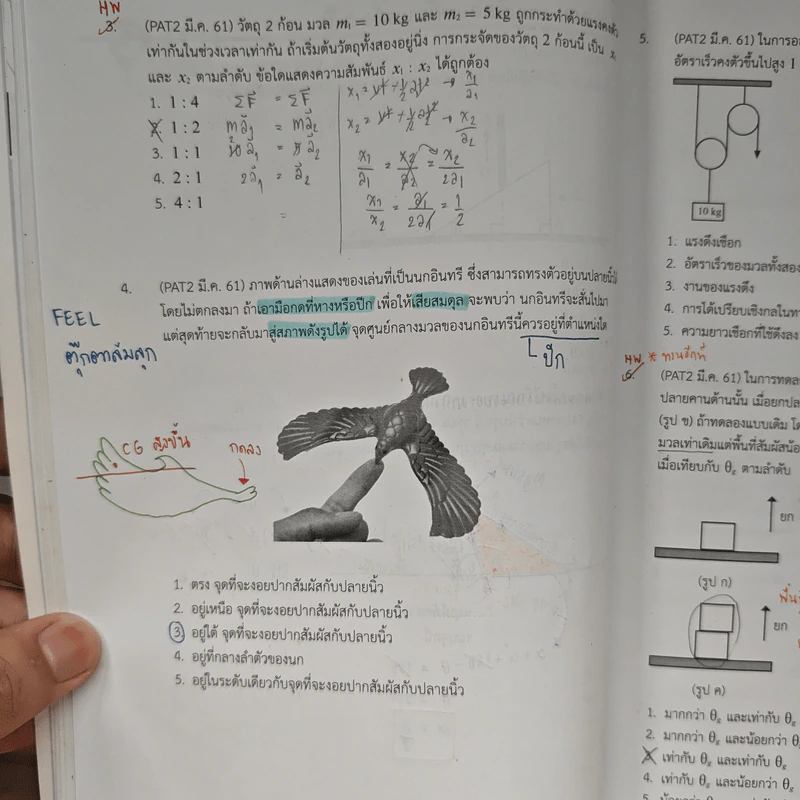 HW
3. (PAT2 มี.ค. 61) วัตถุ 2 ก้อน มวล m₁ = 10 kg และ m₂ = 5 kg ถูกกระทำด้วยแรงคงตัว
เท่ากันในช่วงเวลาเท่ากัน ถ้าเริ่มต้นวัตถุทั้งสองอยู่นิ่ง การกระจัดของวัตถุ 2 ก้อนนี้ เป็น x
และ x₂ ตามลำดับ ข้อใดแสดงความสัมพันธ์ x₁ : x₂ ได้ถูกต้อง
1. 1 : 4
2. 1 : 2
3. 1 : 1
4. 2 : 1
5. 4 : 1
ΣF = ΣF
4. (PAT2 มี.ค. 61) ภาพด้านล่างแสดงของเล่นที่เป็นนกอินทรี ซึ่งสามารถทรงตัวอยู่บนปลายนิ้วได้
โดยไม่ตกลงมา ถ้าเอามือกดที่หางหรือปีก เพื่อให้เสียสมดุล จะพบว่า นกอินทรีจะสั่นไปมา
แต่สุดท้ายจะกลับมาสู่สภาพดังรูปได้ จุดศูนย์กลางมวลของนกอินทรีนี้ควรอยู่ที่ตำแหน่งใด
ปีก
FEEL
ตุ๊กตาล้มลุก
CG สูงขึ้น
กดลง
1. ตรง จุดที่จะงอยปากสัมผัสกับปลายนิ้ว
2. อยู่เหนือ จุดที่จะงอยปากสัมผัสกับปลายนิ้ว
3 อยู่ใต้ จุดที่จะงอยปากสัมผัสกับปลายนิ้ว
4. อยู่ที่กลางลำตัวของนก
5. อยู่ในระดับเดียวกับจุดที่จะงอยปากสัมผัสกับปลายนิ้ว
5. (PAT2 มี.ค. 61) ในการ
อัตราเร็วคงตัวขึ้นไปสูง 1
10 kg
1. แรงดึงเชือก
2. อัตราเร็วของมวลทั้งสอง
3. งานของแรงดึง
4. การได้เปรียบเชิงกลในทา
5. ความยาวเชือกที่ใช้ดึงลง
HW
6. (PAT2 มี.ค. 61) ในการทดล
ปลายคานด้านนั้น เมื่อยกปล
(รูป ข) ถ้าทดลองแบบเดิม โด
มวลเท่าเดิมแต่พื้นที่สัมผัสน้อ
เมื่อเทียบกับ θₛ ตามลำดับ
ยก
(รูป ก)
ยก
(รูป ค)
1. มากกว่า θₛ และเท่ากับ θₛ
2. มากกว่า θₛ และน้อยกว่า θ
3. เท่ากับ θₛ และเท่ากับ θₛ
4. เท่ากับ θₛ และน้อยกว่า θ